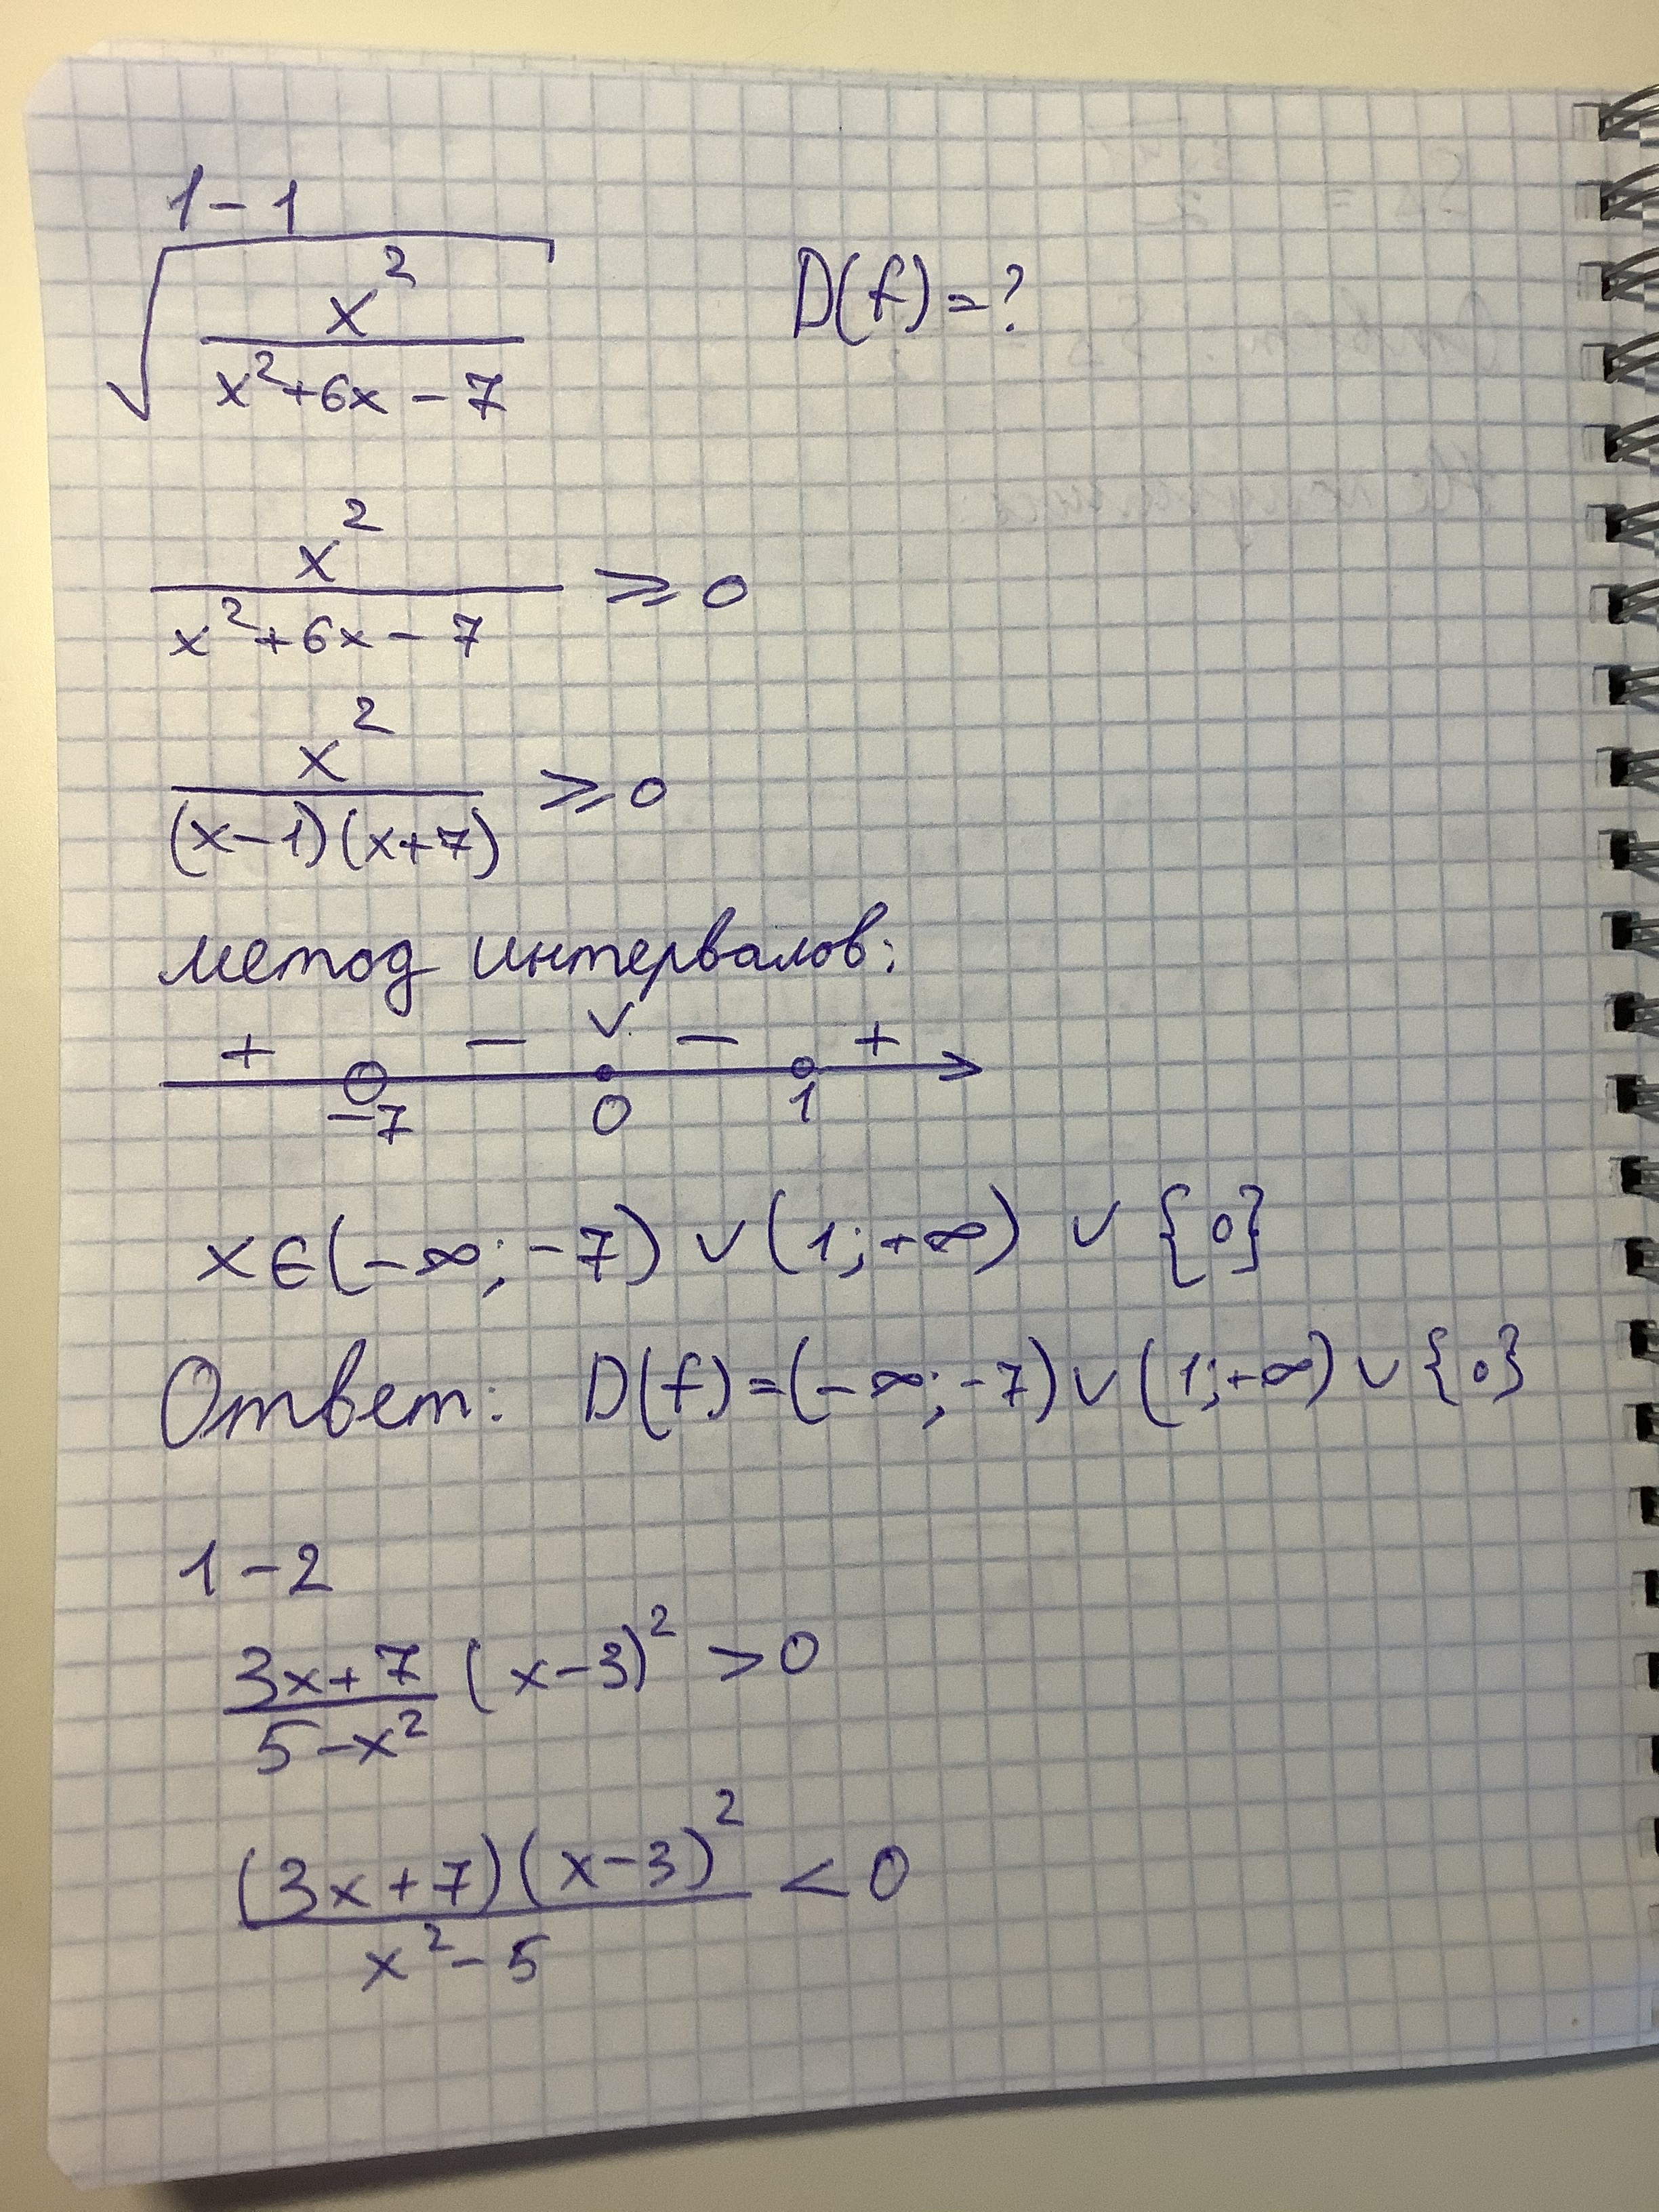 1-1
√(x²/(x²+6x-7)) D(f)=?
x²/(x²+6x-7) ⩾ 0
x²/((x-1)(x+7)) ⩾ 0
метод интервалов:
+ - v - +
-7 0 1
x∈(-∞;-7)∨(1;+∞)∨{0}
Ответ: D(f)=(-∞;-7)∨(1;+∞)∨{0}
1-2
(3x+7)/(5-x²) (x-3)² >0
((3x+7)(x-3)²)/(x²-5) < 0